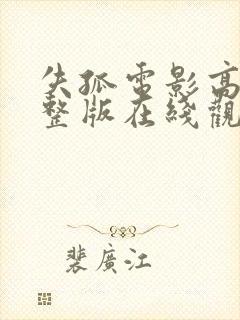 失孤電影高
整版在綫觀
裴廣江